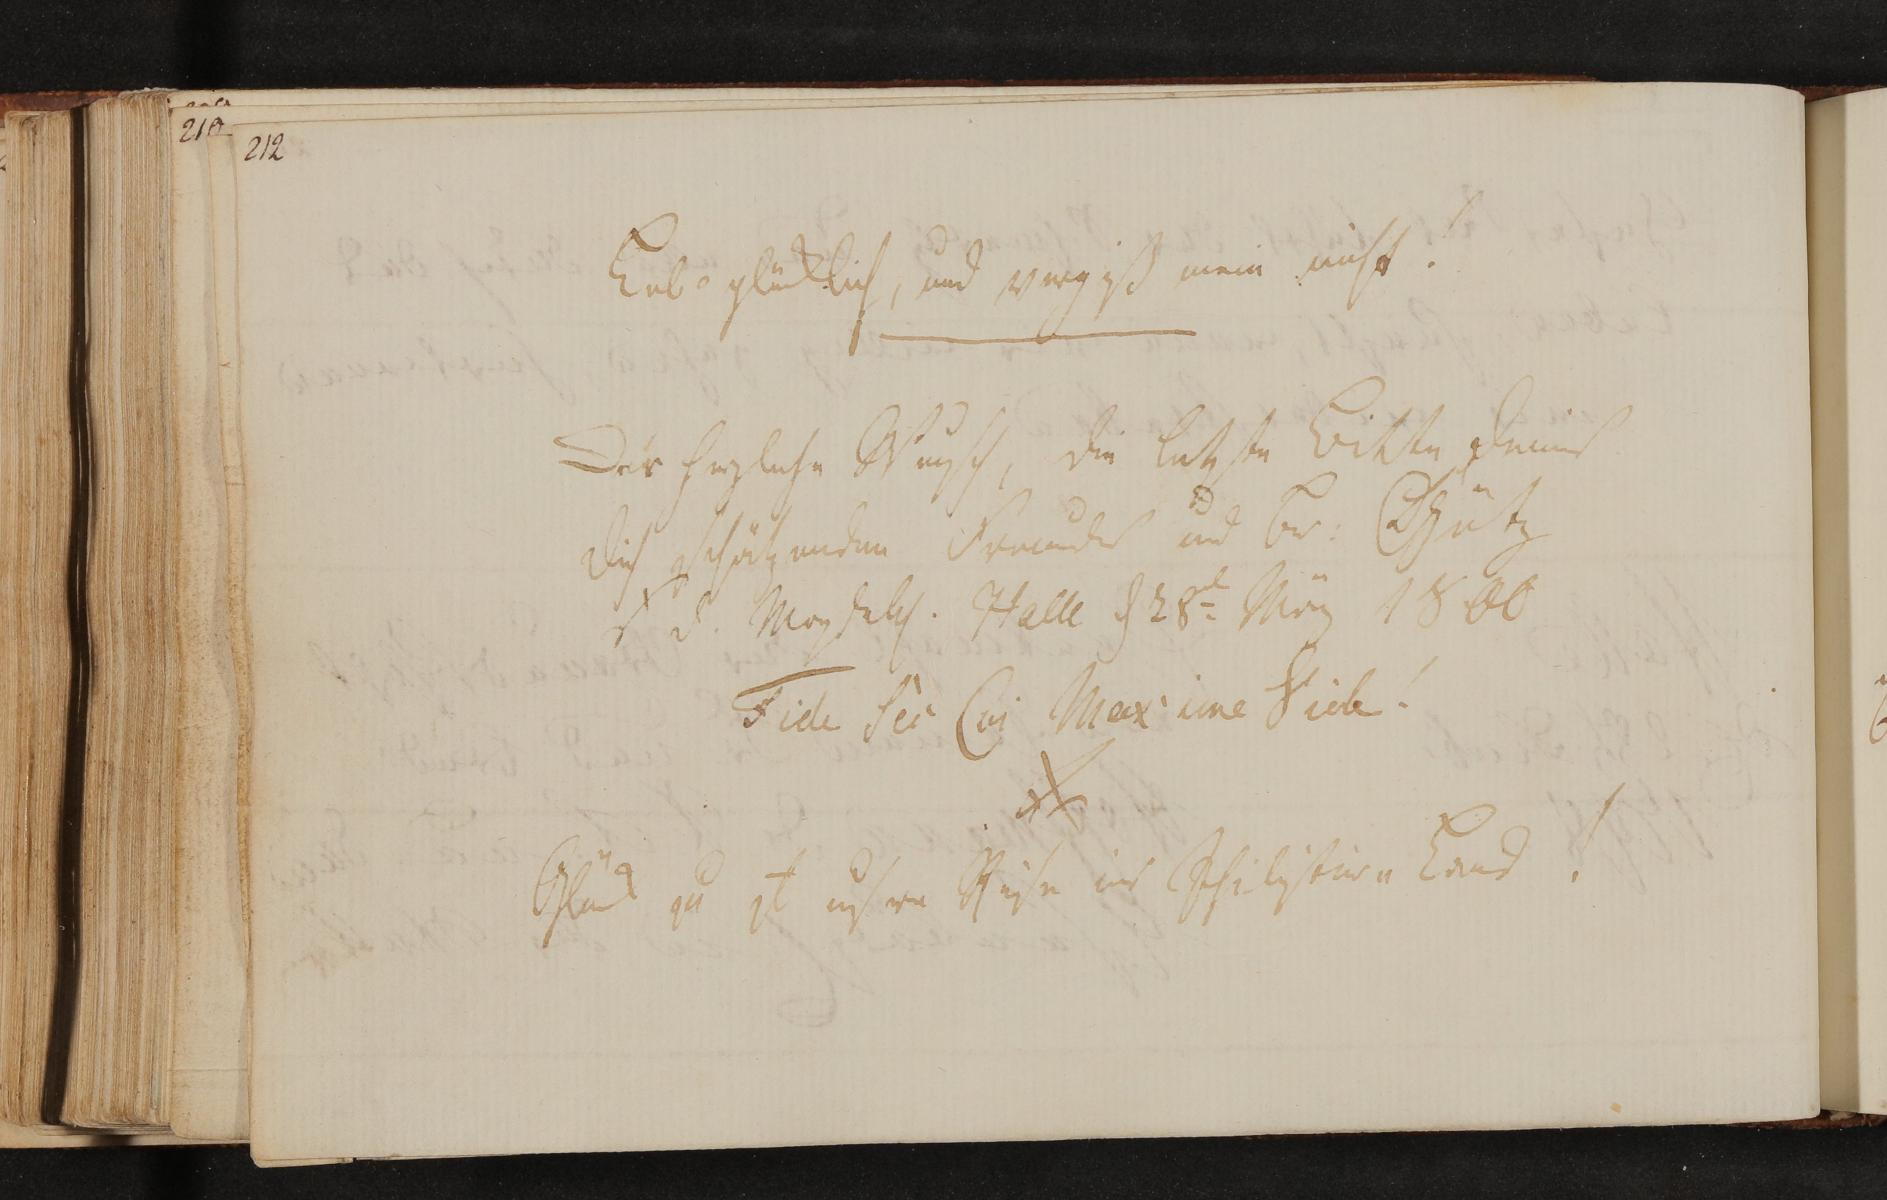 210
212
Lebe glücklich, und vergiß mein nicht!
Der herzliche Wunsch, die letzte Bitte deines
dich schätzenden Freundes und Br: Schütz
a. d. Magdeb. Halle d 28t März 1800
Fide sed Cui Maxime Vide!
Glück zu zur Reise ins Philister Land!